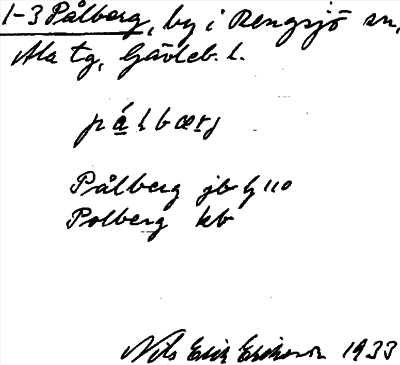 1-3 Pålberg, by i Rengsjö sn,
Ala tg, Gävleb. l.
pålbærj
Pålberg jb
Polberg kb
Nils Erik Eriksson 1933